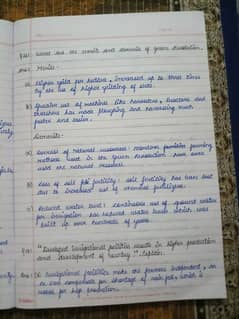 Q(2) What are the merits and demerits of green revolution.
Ans: Merits:-
Higher yield per hectare, increased up to three times
by the use of higher yielding of seeds.
Greater use of machines like harvesters, tractors and
threshers has made ploughing and harvesting much
faster and easier.
Demerits:-
Overuse of natural resources: modern farming
methods used in the green revolution have over
used the natural resources.
Loss of soil fertility: soil fertility has been lost
due to increased use of chemical fertilizers.
Reduced water level: continuous use of ground water
for irrigation has reduced water level which was
built up over hundreds of years.
"Developed irrigational facilities results in higher production
and development of country". Explain.
Irrigational facilities make the farmers independent, as
it does compensate for shortage of rain fall, which is
needed for high production.